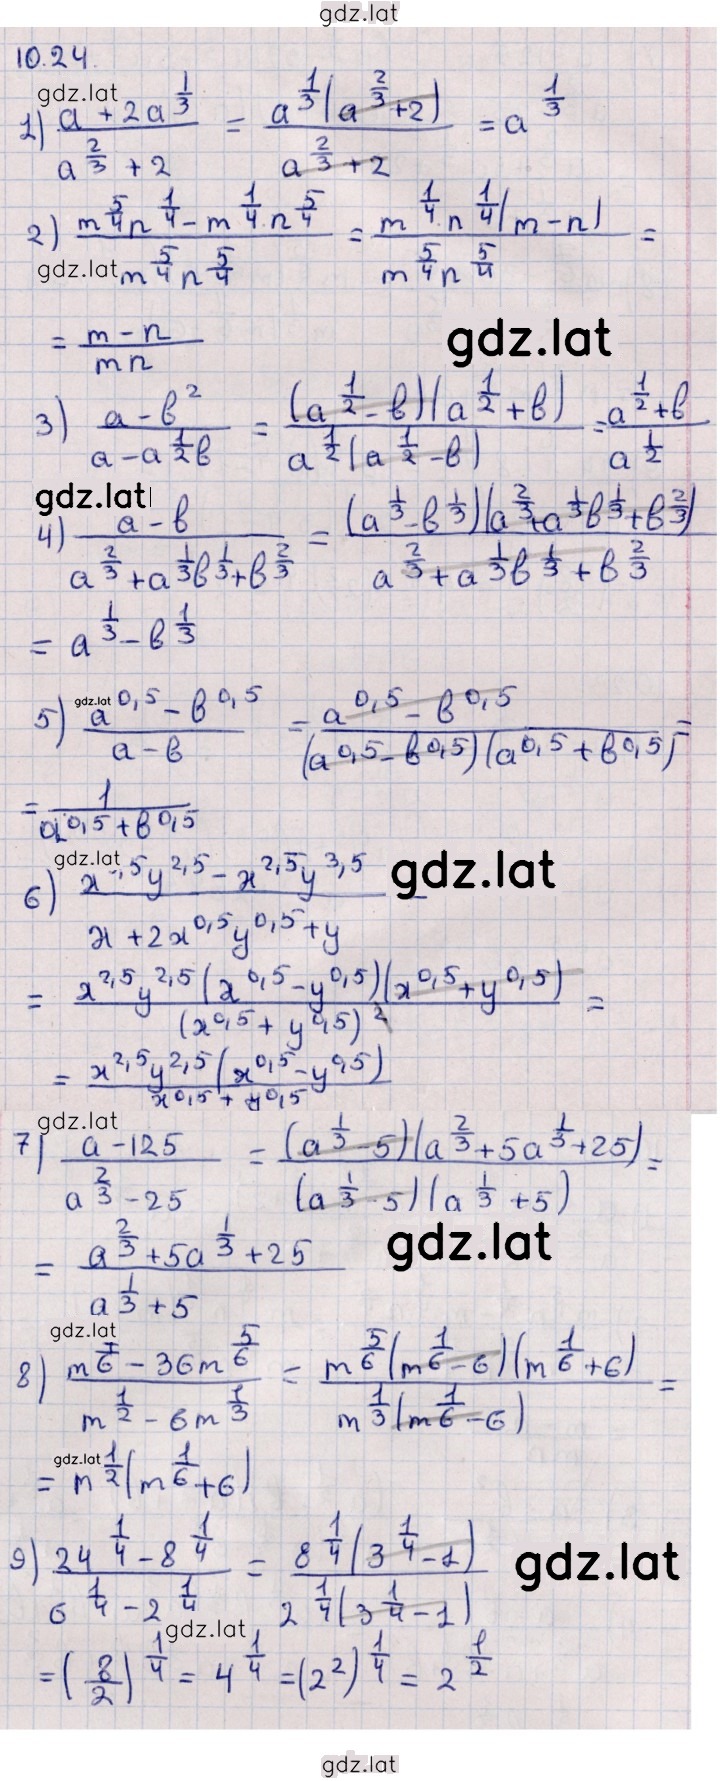 gdz.lat
10.24.
gdz.lat
1) (a + 2a^(1/3)) / (a^(2/3) + 2) = (a^(1/3)(a^(2/3) + 2)) / (a^(2/3) + 2) = a^(1/3)
2) (m^(5/4) n^(1/4) - m^(1/4) n^(5/4)) / (m^(5/4) n^(5/4)) = (m^(1/4) n^(1/4) (m - n)) / (m^(5/4) n^(5/4)) =
gdz.lat
= (m - n) / (mn)
gdz.lat
3) (a - b^2) / (a - a^(1/2) b) = ((a^(1/2) - b)(a^(1/2) + b)) / (a^(1/2)(a^(1/2) - b)) = (a^(1/2) + b) / (a^(1/2))
gdz.lat
4) (a - b) / (a^(2/3) + a^(1/3) b^(1/3) + b^(2/3)) = ((a^(1/3) - b^(1/3))(a^(2/3) + a^(1/3) b^(1/3) + b^(2/3))) / (a^(2/3) + a^(1/3) b^(1/3) + b^(2/3))
= a^(1/3) - b^(1/3)
gdz.lat
5) (a^0,5 - b^0,5) / (a - b) = (a^0,5 - b^0,5) / ((a^0,5 - b^0,5)(a^0,5 + b^0,5)) =
= 1 / (a^0,5 + b^0,5)
gdz.lat
gdz.lat
6) (x^,5 y^2,5 - x^2,5 y^3,5) / (x + 2x^0,5 y^0,5 + y) =
= (x^2,5 y^2,5 (x^0,5 - y^0,5)(x^0,5 + y^0,5)) / ((x^0,5 + y^0,5)^2) =
= (x^2,5 y^2,5 (x^0,5 - y^0,5)) / (x^0,5 + y^0,5)
gdz.lat
7) (a - 125) / (a^(2/3) - 25) = ((a^(1/3) - 5)(a^(2/3) + 5a^(1/3) + 25)) / ((a^(1/3) - 5)(a^(1/3) + 5)) =
= (a^(2/3) + 5a^(1/3) + 25) / (a^(1/3) + 5)
gdz.lat
gdz.lat
8) (m^(7/6) - 36m^(5/6)) / (m^(1/2) - 6m^(1/3)) = (m^(5/6)(m^(1/6) - 6)(m^(1/6) + 6)) / (m^(1/3)(m^(1/6) - 6)) =
gdz.lat
= m^(1/2)(m^(1/6) + 6)
9) (24^(1/4) - 8^(1/4)) / (6^(1/4) - 2^(1/4)) = (8^(1/4)(3^(1/4) - 1)) / (2^(1/4)(3^(1/4) - 1))
gdz.lat
gdz.lat
= (8/2)^(1/4) = 4^(1/4) = (2^2)^(1/4) = 2^(1/2)
gdz.lat